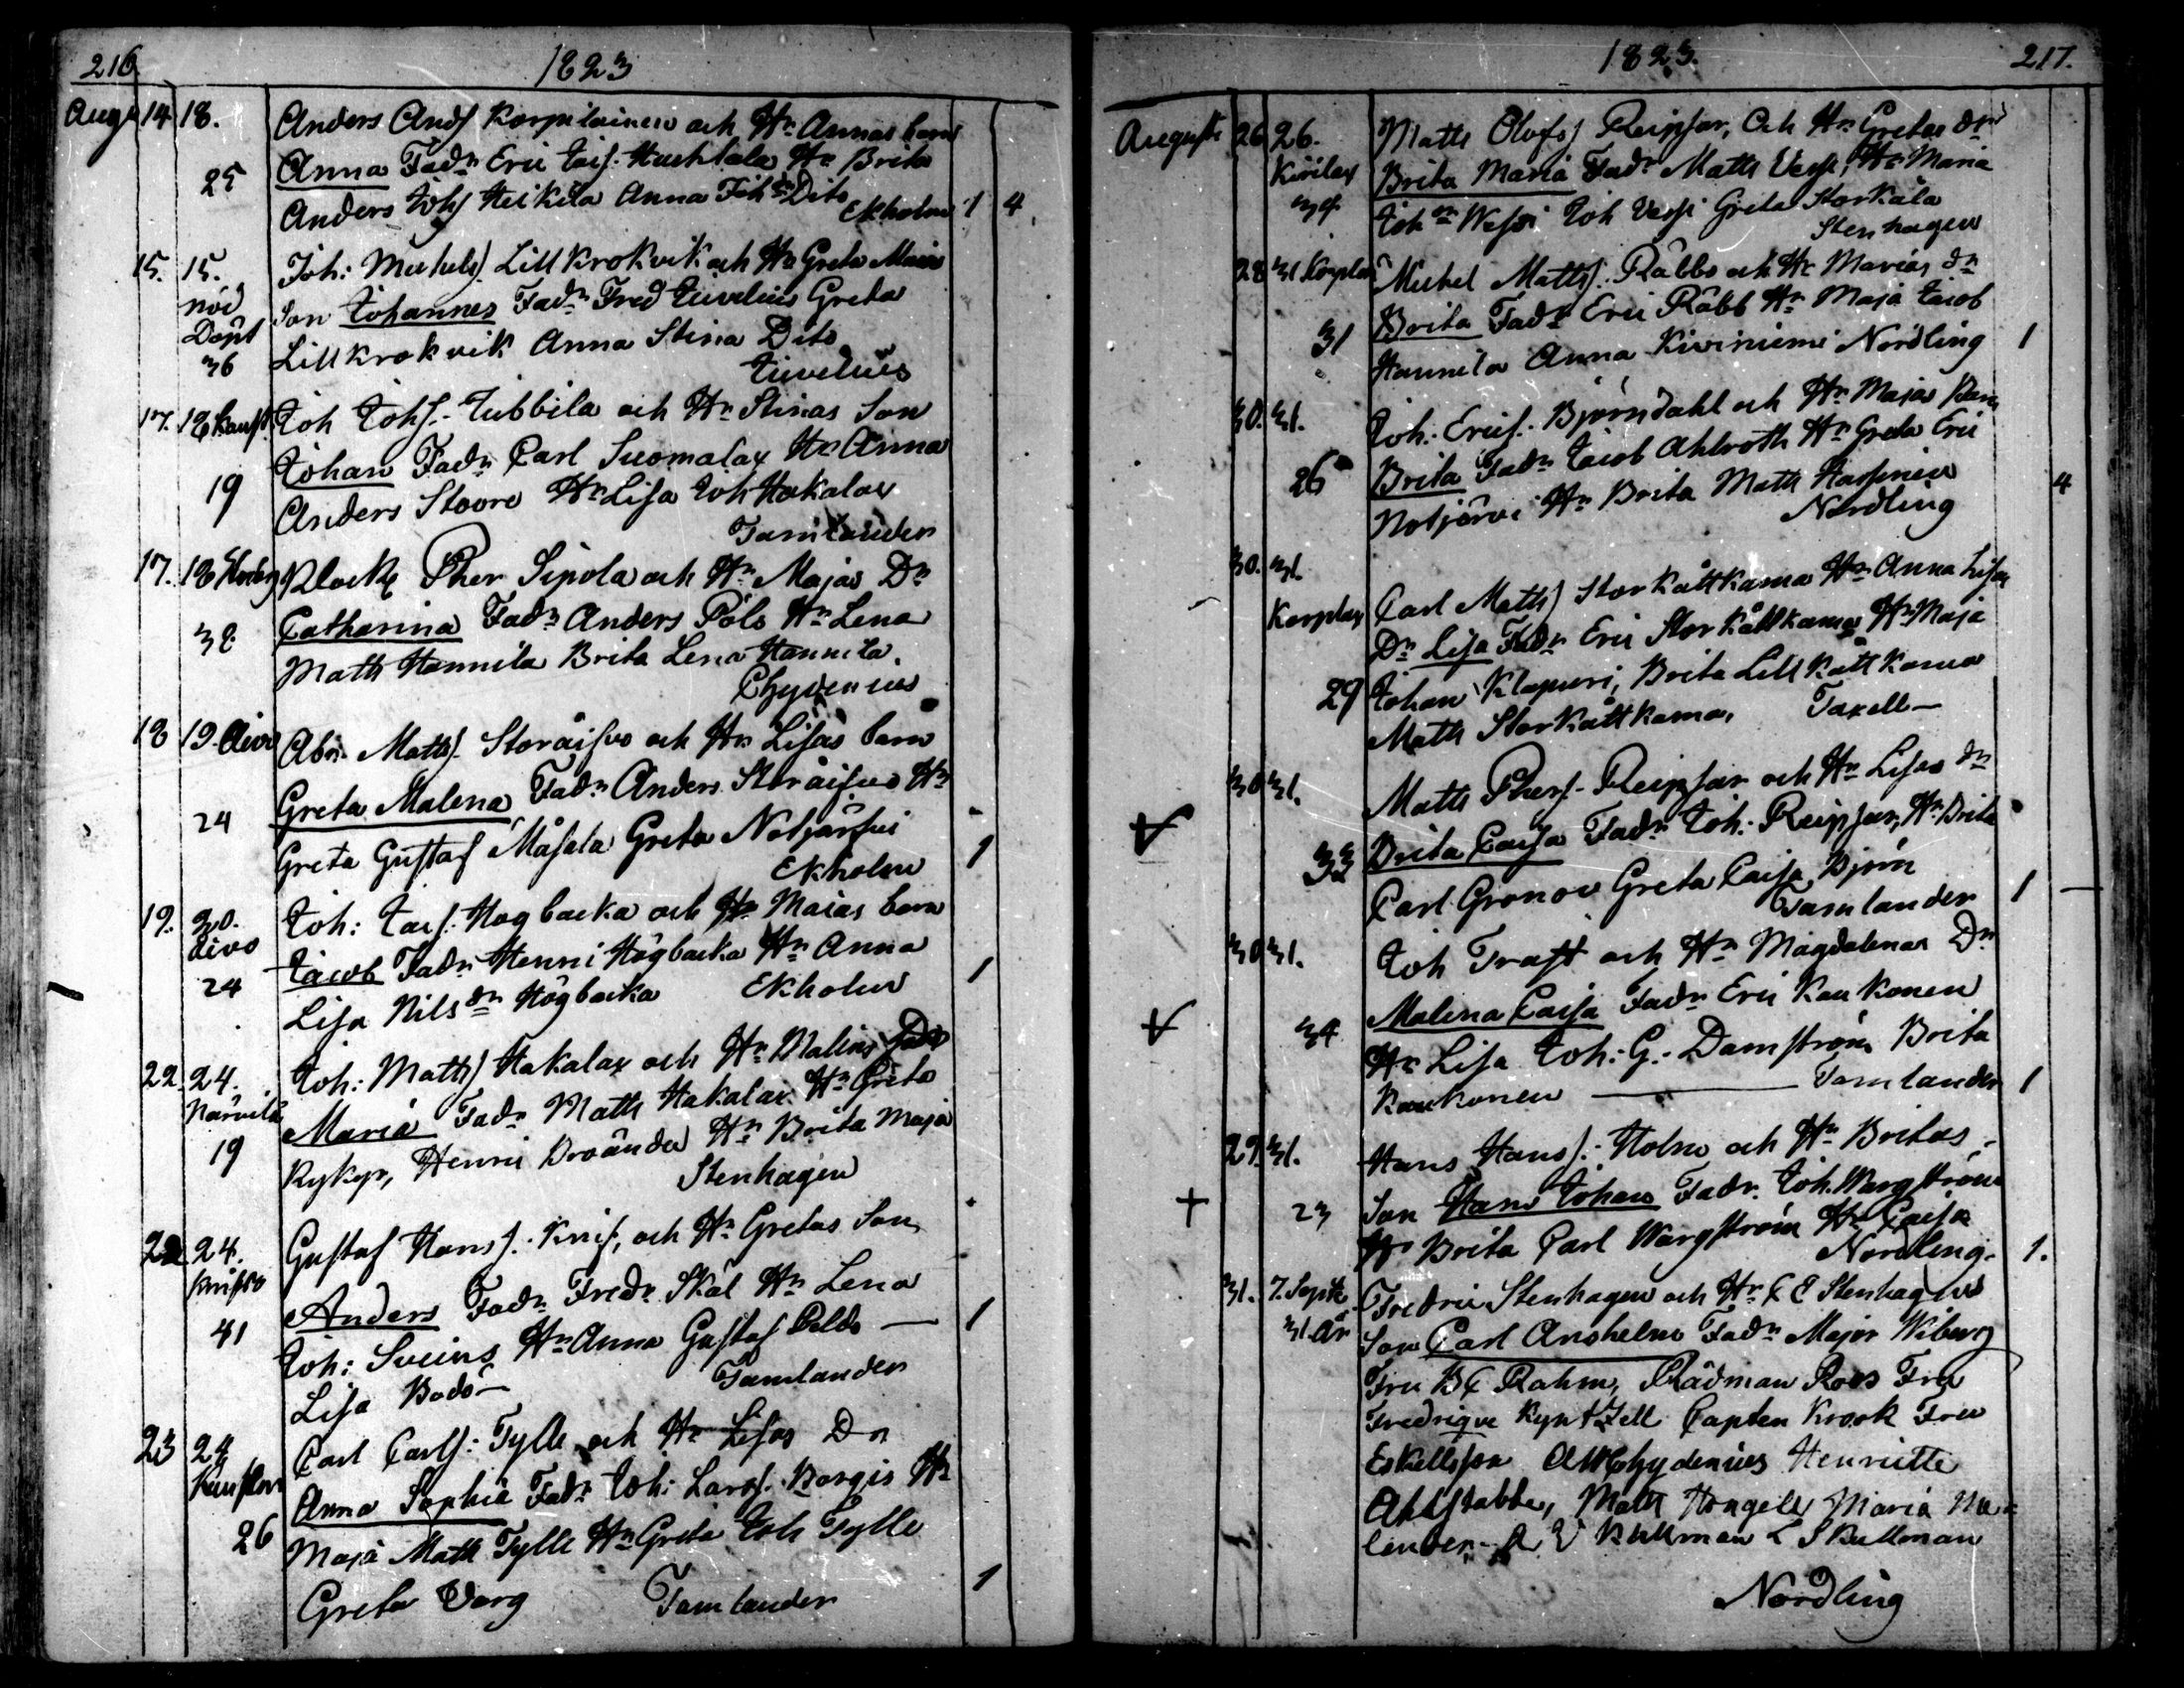 216
1823
Aug. 14 18. Anders Andſ Korpilainen och Hn Annas barn
Anna Fadr Eric Jacſ. Huchtala Hn Brita
25 Anders Johſ Heikila Anna Joh dr Dito
Ekholm 1 4
15. 15. Joh: Michelſ Lillkrokvik och Hn Greta Maias
nöd Son Johannes Fadr Fred Tuvelius Greta
Döpt Lillkrokvik Anna Stina Dito
36 Tuvelius
17. 18 Kauſt. Joh Johſ. Tubbila och Hn Stinas Son
Johan Fadr Carl Suomalax Hn Anna
19 Anders Stoore Hn Liſa Joh Hakalax
Tamlander
17. 18 Klock Pher Sipola och Hn Majas Dr
Catharina Fadr Anders Pålo Hn Lena
38 Matts Hannila Brita Lena Hannila.
Chydenius
18 19. Aivo Abr. Mattſ. Storåiſvo och Hn Liſas barn
Greta Malena Fadr Anders Storåiſvo Hn
24 Greta Guſtaf Måſala Greta Notjärfvi
Ekholm 1
19. 20. Joh: Jacſ. Högbacka och Hn Maias barn
Aivo Jacob Fadr Henric Högbacka Hn Anna
24 Liſa Nils dr Högbacka Ekholm 1
22. 24. Joh: Mattſ Hakalax och Hn Malins
Närvilä Maria Fadr Matts Hakalax Hn Greta
19 Rykyr, Henric Hn Brita Maja
Stenhagen
22 24. Guſtaf Hansſ. Knif, och Hn Gretas Son
Knifſvo Anders Fadr Fredr Skäl Hn Lena
41 Joh: Sveins Hn Anna Guſtaf 1
Liſa Bodö Tamlander
23 24 Carl Carlſ: Tylli och Hn Liſas Dr
Anna Sophia Fadr Joh: Larsſ. Borgis Hn
26 Maja Matts Tylli Hn Greta Joh Tylli
Greta Varg Tamlander 1
1823.
217.
Auguſti 26 26. Matts Olofsſ Reipſar, Och Hn Gretas dr
Kirilax Brita Maria Fadr Matts Hn Maria
Joh Joh Greta Storkåla
Stenhagen
28 31 Korplax Michel Mattſ. Räbbs och Hn Marias dr
Brita Fadr Eric Räbb Hn Maja Jacob
31 Hannila Anna Kiviniemi Nordling 1
30. 31. Joh: Ericſ. Björndahl och Hn Majas Barn
26 Brita Fadr Jacob Ahlroth Hn Greta Eric
Notjärvi Hn Brita Matts 4
Nordling
30. 31. Carl Mattſ Storkåttkama Hn Anna Liſas
Korplax Dr Liſa Fadr Eric Storkåttkama, Hn Maja
29 Johan Klapuri, Brita Lillkåttkama
Matts Storkåttkama, Taxell
30 31. Matts Pherſ. Reipſar och Hn Liſas dr
33 Brita Caiſa Fadr Joh: Reipſar, Hn Brita
Carl Gronov Greta Caiſa Björn
Tamlander 1
30 31. Joh Traſt och Hn Magdalenas Dr
Malena Caiſa Fadr Eric Kaukonen
34 Hn Liſa Joh: G: Damſtröm Brita
Kaukonen Tamlander 1
29. 31. Hans Hansſ. Holm och Hn Britas
23 Son Hans Johan Fadr. Joh. Wargſtröm
Hn Brita Carl Wargſtröm Hn Caiſa
Nordling. 1.
31. 7. Sept. Fredric Stenhagen och Hn C E Stenhagens
31. År Son Carl Anshelm Fadr Major Wiberg
Fru B C Rahm, Rådman Roos Fru
Fredrique Kyntzell Capten Krook Fru
Eskelſſon Chydenius Henriette
Ahlſtubbe, Matts Hongell Maria
lander. A E Kullman L S Kullman
Nordling